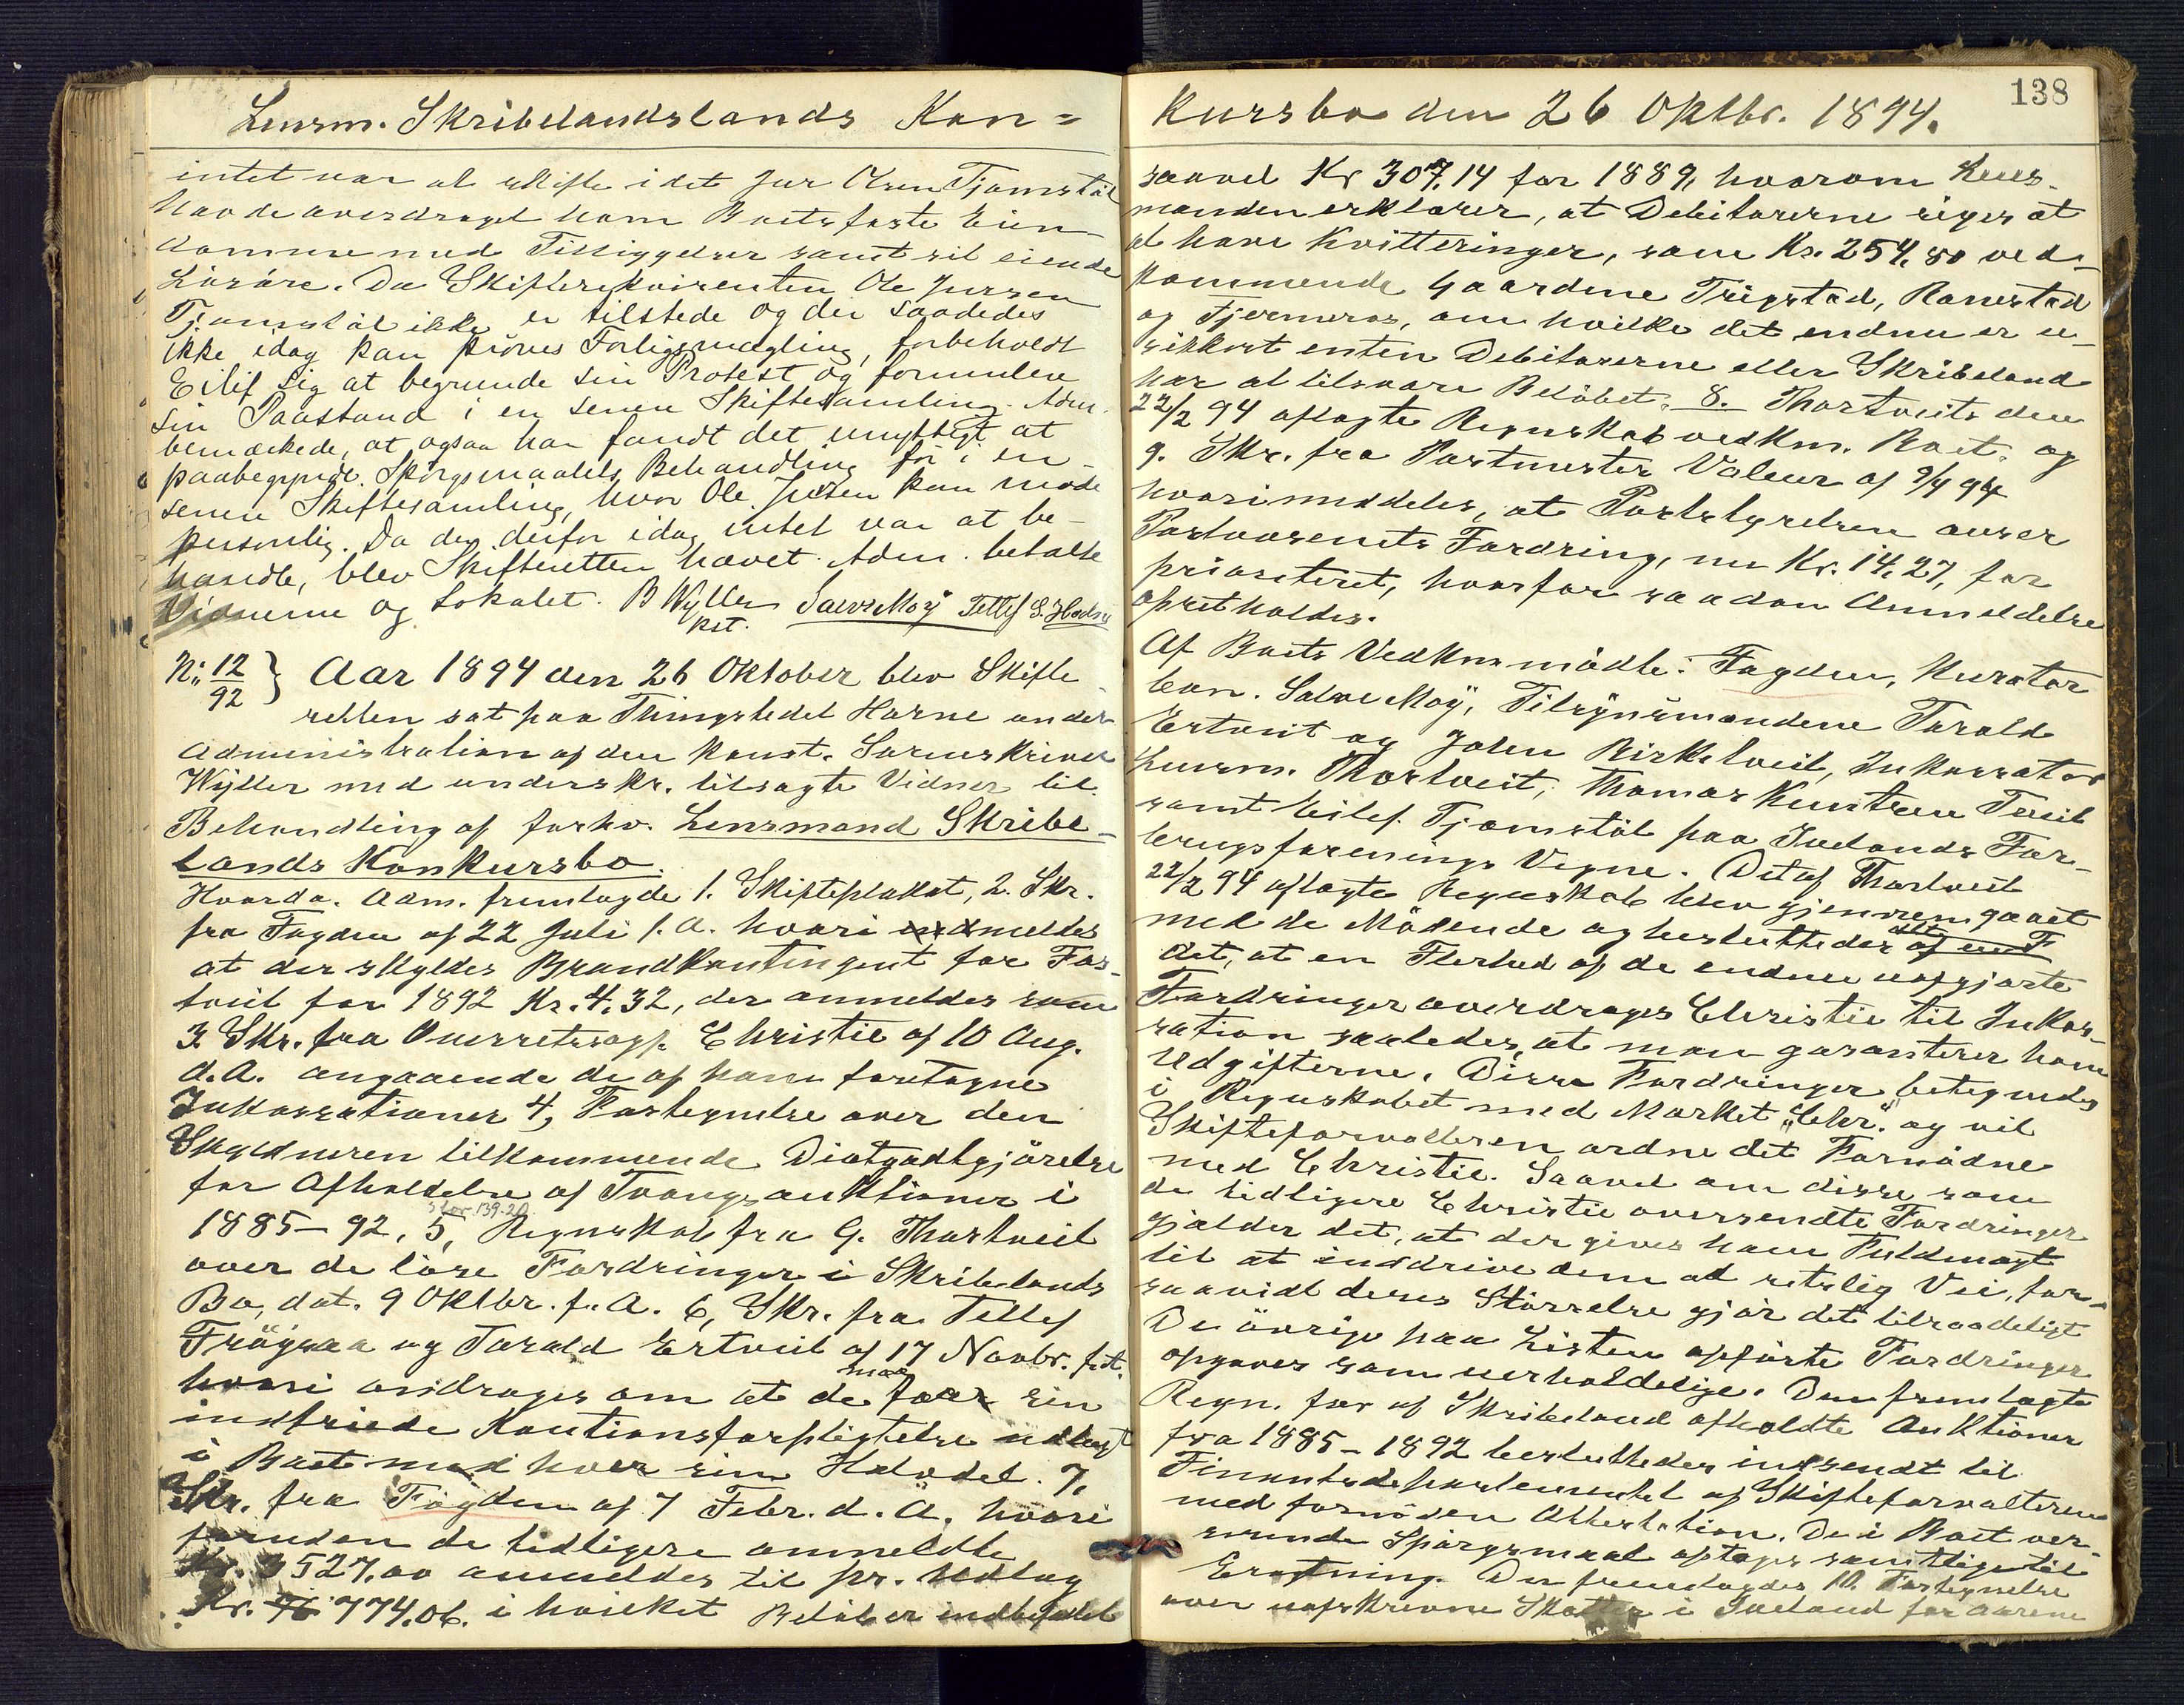 Lensm. Skribelandslands Kon=
intet var at skifte idet Jur Olsen Tjomstöl
havde overdraget ham Boets faste Eien-
domme med Tilliggelser samt sit eiende
Lösöre. Da Skifterekvirenten Ole Jursen
Tjomstöl ikke er tilstede og der saaledes
ikke idag kan pröves Forligsmægling, forbeholdt
Eilif sig at begrunde sin Protest og formulere
sin Paastand i en senere Skiftesamling. Adm.
bemærkede, at ogsaa han fandt det unyttigt at
paabegynde Spörgsmaalets Behandling för i en
senere Skiftesamling, hvor Ole Jursen kan möde
personlig. Da der derfor idag intet var at be-
handle, blev Skifteretten hævet. Adm. betalte
Vidnerne og Lokalet. B Wyller Salve Moÿ Tellef S.
kst.
N: 12/92 } Aar 1894 den 26 Oktober blev Skifte
retten sat paa Thingstedet Horne under
Administration af den konst. Sorenskriver
Wÿller med underskr. tilsagte Vidner til
Behandling af forhv. Lensmand Skribe-
lands Konkursbo.
Hvorda. Adm. fremlagde 1. Skifteplakat, 2. Skr.
fra Fogden af 22 Juli f. A. hvori meldes
at der skyldes Brandkontingent for Fos-
tveit for 1892 Kr. 4.32, der anmeldes som
3. Skr. fra Overretssagf. Christie af 10 Aug.
d. A. angaaende de af ham foretagne
Inkassationer 4, Fortegnelse over den
Skyldneren tilkommende Diætgodtgjörelse
for Afholdelse af Tvangsauktioner i
stor 139.20.
1885-92, 5, Regnskab fra G. Thortveit
over de löse Fordringer i Skribelands
Bo, dat. 9 Oktbr. f. A. 6, Skr. fra Tellef
Frögsaa og Torald Ertveit af 17 Novbr. f. A.
maa
hvori andrages om at de faar sin
indfriede Kautionsforpligtelse udlagt
i Boet med hver sin Halvdel. 7,
Skr. fra Fogden af 7 Febr. d. A. hvori
foruden de tidligere anmeldte
Kr. 3527,00 anmeldes til pr. Udlag
Kr. 774.06. i hvilket Belöb er indbefattet
138
kursbo den 26 Oktbr. 1894.
saavel Kr 307,14 for 1889, hvorom Lens-
manden erklærer, at Debitorerne siges at
at have Kvitteringer, som Kr. 254,80 ved-
kommende Gaardene Trygstad, Ronestad
og Tjernmros, om hvilke det endnu er u-
sikkert enten Debitorerne eller Skribeland
har at tilsvare Belöbet, 8. Thortveits den
22/2 94 aflagte Regnskab vedkm. Boet, og
9. Skr. fra Postmester Valeur af 9/4 94
hvori meddeles, at Poststyrelsen anser
Postvæsenets Fordring, nu Kr. 14,27, for
prioriteret, hvorfor saadan Anmeldelse
opretholdes.
Af Boets Vedkm mödte: Fogden, Kurator
bon. Salve Moÿ, Tilsÿnsmændene Torald
Ertveit og John Birketveit, Inkassator
Lensm. Thortveit, Thomas Knutsen Tveit
samt Eilef Tjomstöl paa Ivelands For-
brugsforenings Vegne. Det af Thortveit
22/2 94 aflagte Regnskab blev gjennemgaaet
med de Mödende og besluttedes af en F
det, at en Flerhed af de endnu uopgjorte
Fordringer overdrages Christie til Inkas-
sation saaledes, at man garanterer ham
Udgifterne. Disse Fordringer betegnedes
i Regnskabet med Mærket „Chr.“ og vil
Skifteforvalteren ordne det Fornödne
med Christie. Saavel om disse som
de tidligere Christie oversendte Fordringer
gjælder det, at der gives ham Fuldmagt
til at inddrive dem ad retslig Vei, for-
saavidt deres Störrelse gjör det tilraadeligt
De övrige paa Listen opförte Fordringer
opgaves som uerholdelige. Den fremlagte
Regn. for af Skribeland afholdte Auktioner
fra 1885-1892 besluttedes indsendt til
Finantsdepartementet af Skifteforvalteren
med fornöden Attestation. De i Boet ver-
serende Spörgsmaal optages samtlige til
Der fremlagdes 10. Fortegnelse
over uafskrevne Skatter i Iveland for Aarene